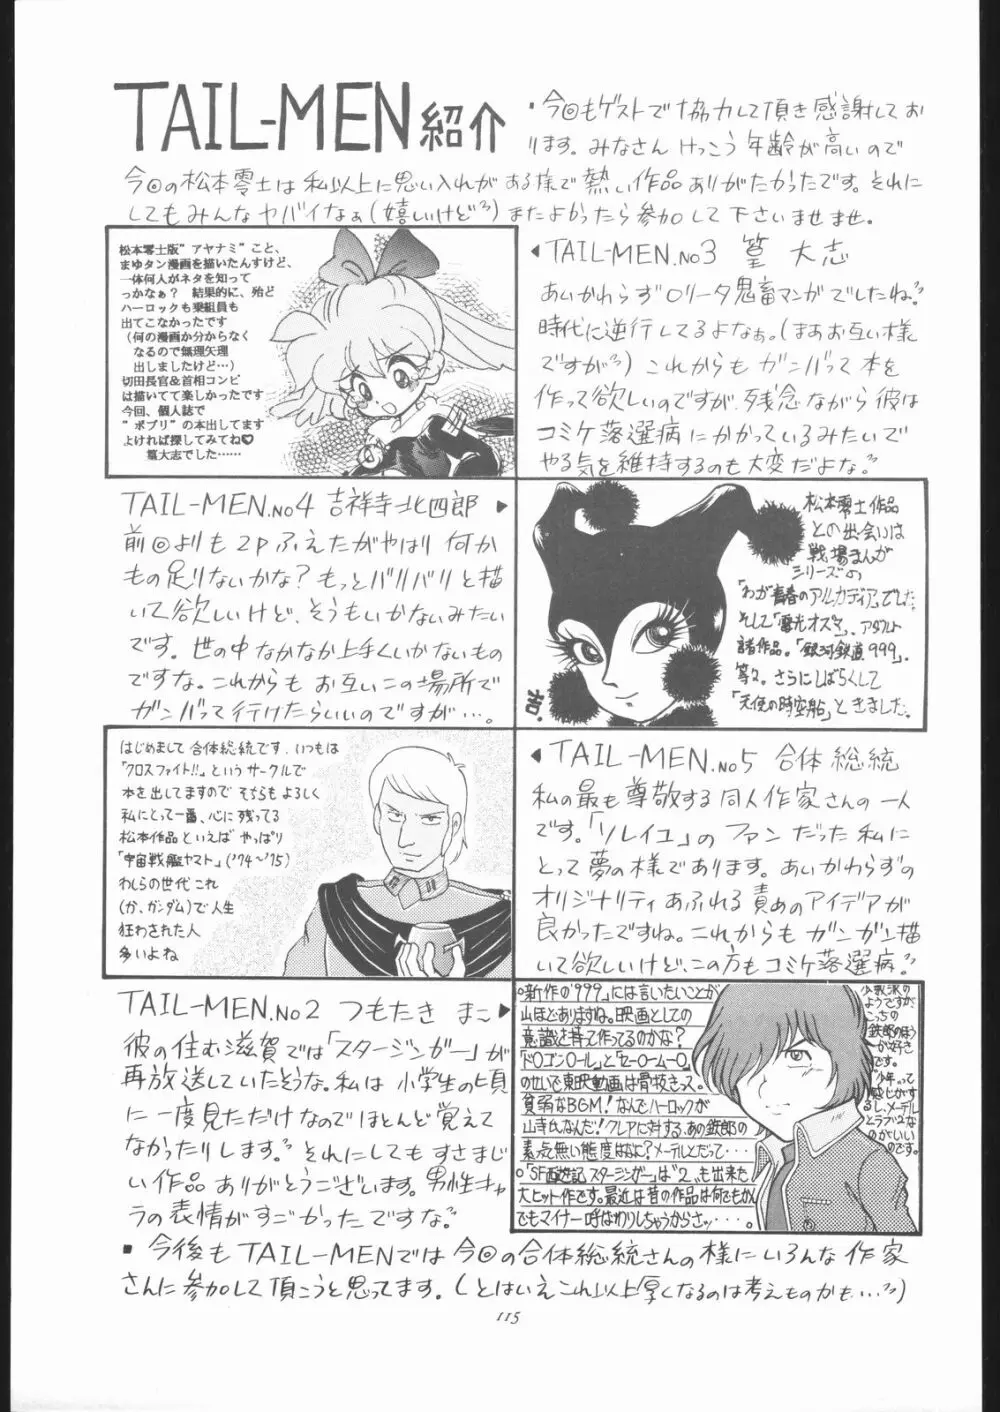 TAIL-MEN紹介
・今回もゲストで協力して頂き感謝してお
ります。みなさんけっこう年齢が高いので
今回の松本零士は私以上に思い入れがある様で熱い作品ありがたかったです。それに
してもみんなヤバイなぁ(嬉しいけど)またよかったら参加して下さいませませ。
松本零士版"アヤナミ"こと、
まゆタン漫画を描いたんすけど、
一体何人がネタを知って
っかなぁ? 結果的に、殆ど
ハーロックも乗組員も
出てこなかったです
(何の漫画か分からなく
なるので無理矢理
出しましたけど…)
切田長官&首相コンビ
は描いてて楽しかったです
今回、個人誌で
"ポプリ"の本出してます
よければ探してみてね♡
篁大志でした……
◀TAIL-MEN.No3 篁 大志
あいかわらずロリータ鬼畜マンガでしたね。
時代に逆行してるよなぁ。(まあお互い様
ですが)これからもガンバって本を
作って欲しいのですが、残念ながら彼は
コミケ落選病にかかっているみたいで
やる気を維持するのも大変だよな。
TAIL-MEN.No4 吉祥寺北四郎 ▶
前回よりも2Pふえたがやはり何か
もの足りないかな?もっとバリバリと描
いて欲しいけど、そうもいかないみたい
です。世の中なかなか上手くいかないもの
ですな。これからもお互いこの場所で
ガンバって行けたらいいのですが…。
松本零士作品
との出会いは
戦場まんが
シリーズの
「わが青春のアルカディア」でした。
そして「電光オズマ」、アダルト
諸作品。「銀河鉄道999」.
等々。さらにしばらくして
「天使の時空船」ときました。
吉.
はじめまして合体総統です.いつもは
「クロスファイト!!」というサークルで
本を出してますのでそちらもよろしく
私にとって一番、心に残ってる
松本作品といえばやっぱり
「宇宙戦艦ヤマト」('74〜'75)
わしらの世代これ
(か、ガンダム)で人生
狂わされた人
多いよね
◀TAIL-MEN.No5 合体総統
私の最も尊敬する同人作家さんの一人
です。「ソレイユ」のファンだった私に
とって夢の様であります。あいかわらずの
オリジナリティあふれる責めのアイデアが
良かったですね。これからもガンガン描
いて欲しいけど、この方もコミケ落選病。
TAIL-MEN.No2 つもたき まこ
彼の住む滋賀では「スタージンガー」が
再放送していたそうな。私は小学生の頃
に一度見ただけなのでほとんど覚えて
なかったりします。それにしてもすさまじ
い作品ありがとうございます。男性キャ
ラの表情がすごかったですな。
○新作の'999」には言いたいことが
山ほどありますね。映画としての
意識を持って作ってるのかな?
「ドロゴンロール」と「セーロームーロ」
のせいで東映動画は骨抜きっス。
貧弱なBGM!なんでハーロックが
山寺氏なんだ!クレアに対する、あの鉄郎の
素っ気無い態度はなに?メーテルとだって・・・
○「SF西遊記スタージンガー」は"2"も出来た
大ヒット作です。最近は昔の作品は何でもかん
でもマイナー呼ばわりしちゃうからさッ・・・・。
少数派の
ようですが、
こっちの
鉄郎のほう
が好き
です。
"少年"って
感じがす
るし、メーテル
とラブ2な
のがいい
のです。
・今後もTAIL-MENでは今回の合体総統さんの様にいろんな作家
さんに参加して頂こうと思ってます。(とはいえこれ以上厚くなるのは考えものかも…)
115